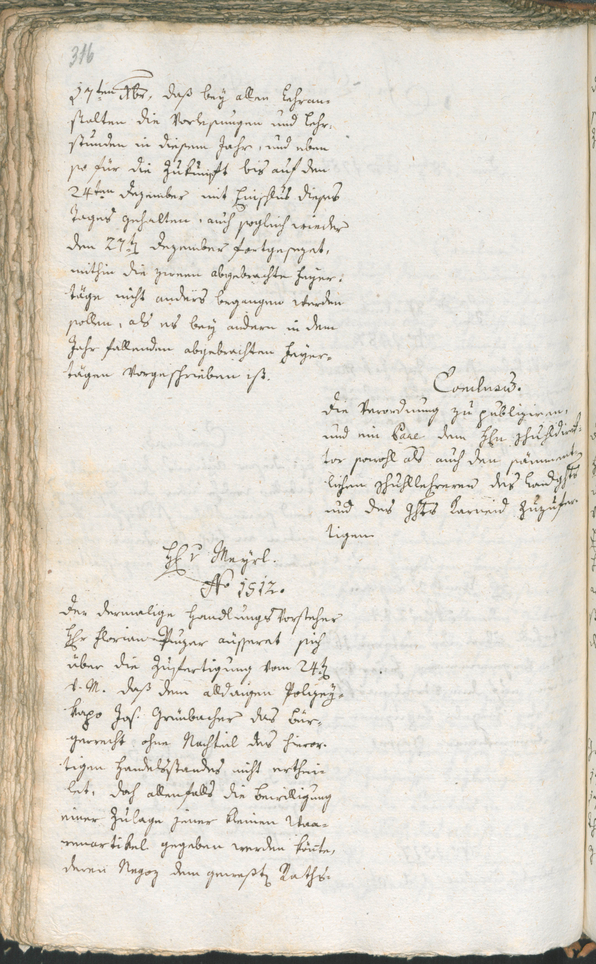 316
17ten Xbr, daß bey allen Lehran-
stalten die Vorlesungen und Lehr-
stunden in diesem Jahr, und eben
so für die Zukunft bis auf den
24ten Dezember mit Einschluß dieses
Tages gehalten, auch sogleich wieder
den 27ten Dezember fortgesezt,
mithin die zween abgebrachte Feyer-
täge nicht anders begangen werden
sollen, als es bey andern in dem
Jahr fallenden abgebrachten Feyer-
tägen Vorgeschrieben ist.
Conclusum.
die Verordnung zu publiziren,
und ein Pare dem Hrn Schuhldirek-
tor sowohl als auch den sämment-
lichen Schuhllehreren des Landghts
und des Ghts Karneid zuzufer-
tigen
Hr v Meyrl.
No 1512.
Der dermalige Handlungs Vorsteher
Hr Florian Puzer äusseret sich
über die Zufertigung vom 24ten
v. M. daß dem alldaigen Polizey
Kapo Jos. Grünbacher das Bür-
gerrecht ohne Nachteil des hieror-
tigen Handelsstandes nicht erthei-
let, doch allenfalls die Bewilligung
einer Zulage jener kleinen Waa-
renartikel gegeben werden könte,
deren Negoz dem gewesten Raths-